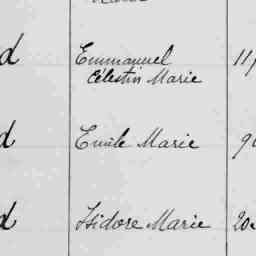 d Emmanuel 11
Célestin Marie
d Emile Marie 9
d Isidore Marie 20